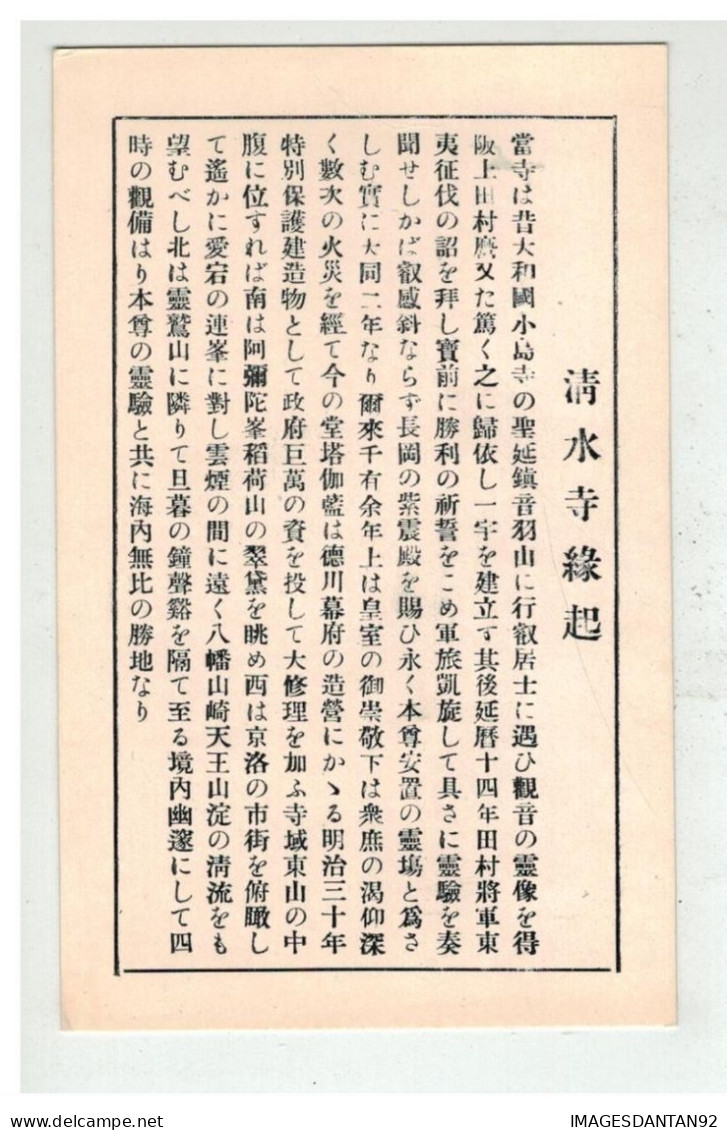 淸水寺緣起
當寺は昔大和國小島寺の聖延鎭音羽山に行叡居士に遇ひ觀音の靈像を得
阪上田村麿又た篤く之に歸依し一宇を建立す其後延曆十四年田村將軍東
夷征伐の詔を拜し寶前に勝利の祈誓をこめ軍旅凱旋して具さに靈驗を奏
聞せしかば叡感斜ならず長岡の紫震殿を賜ひ永く本尊安置の靈塲と爲さ
しむ實に大同二年なり爾來千有余年上は皇室の御崇敬下は衆庶の渴仰深
く數次の火災を經て今の堂塔伽藍は德川幕府の造營にかゝる明治三十年
特別保護建造物として政府巨萬の資を投して大修理を加ふ寺域東山の中
腹に位すれば南は阿彌陀峯稻荷山の翠黛を眺め西は京洛の市街を俯瞰し
て遙かに愛宕の連峯に對し雲煙の間に遠く八幡山崎天王山淀の淸流をも
望むべし北は靈鷲山に隣りて旦暮の鐘聲谿を隔て至る境內幽邃にして四
時の觀備はり本尊の靈驗と共に海內無比の勝地なり
delcampe.net
IMAGESDANTAN92